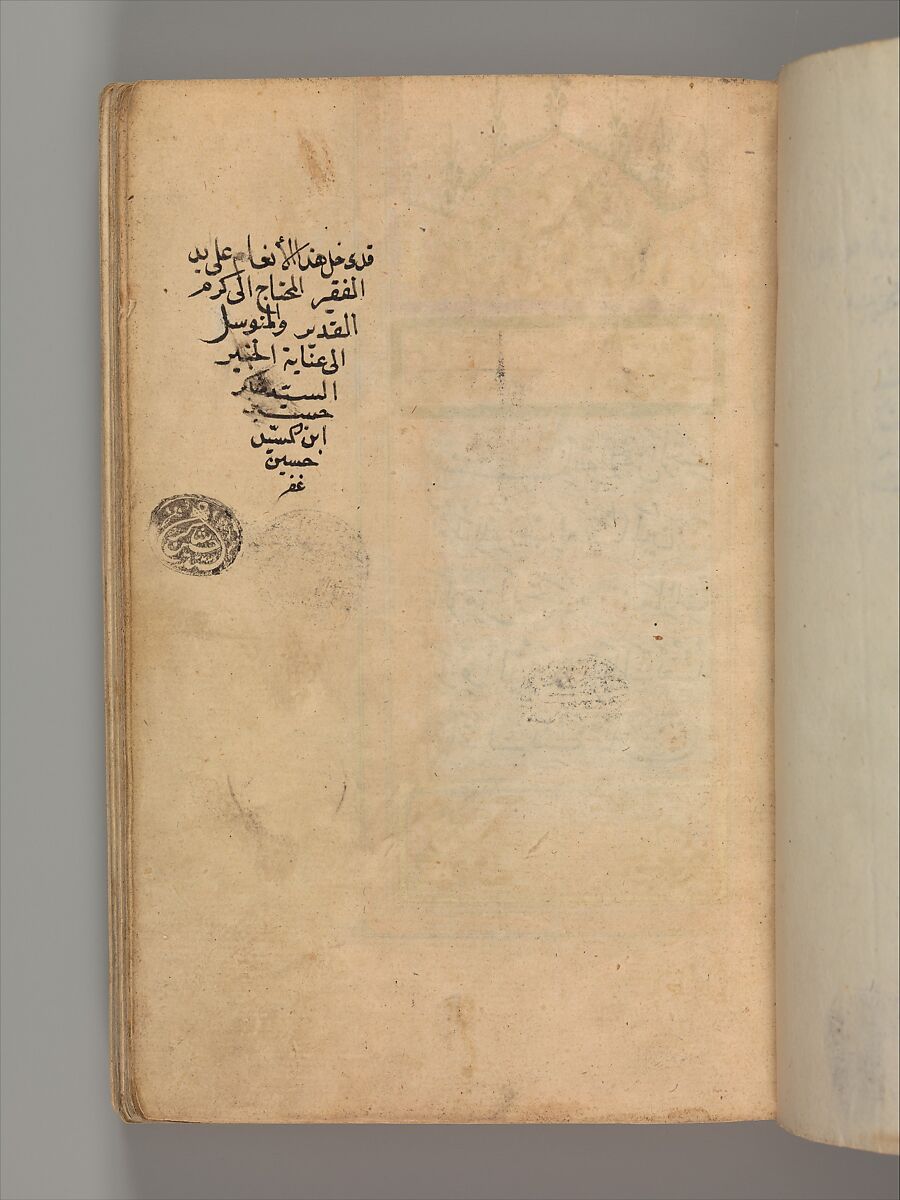 قد دخل هذا الأنعام على يد
الفقير المحتاج الى كرم
القدير والمتوسل
الى عناية الخبير
السيد
حسين
ابن السيد
حسين
غفر